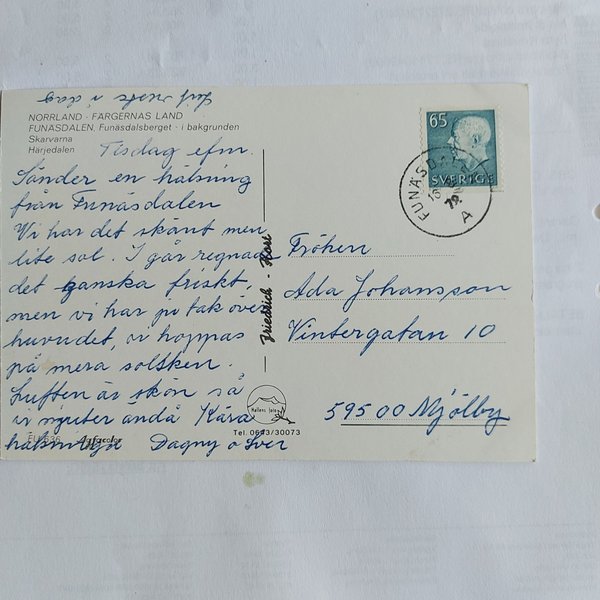 i dag
NORRLAND · FÄRGERNAS LAND
FUNÄSDALEN, Funäsdalsberget · i bakgrunden
Skarvarna
Härjedalen
Tisdag efm.
Sänder en hälsning
från Funäsdalen
Vi har det skönt men
lite sol. I går regnade
det ganska friskt,
men vi har ju tak över
huvudet, o hoppas
på mera solsken.
Luften är skön så
vi njuter ändå Kära
hälsningar Dagny o Sver
Friedrich · Foto
Hallens foto
Tel. 0683/30073
FU 636 Agfacolor
65
SVERIGE
FUNÄSDALEN
A
Fröken
Ada Johansson
Vintergatan 10
595 00 Mjölby